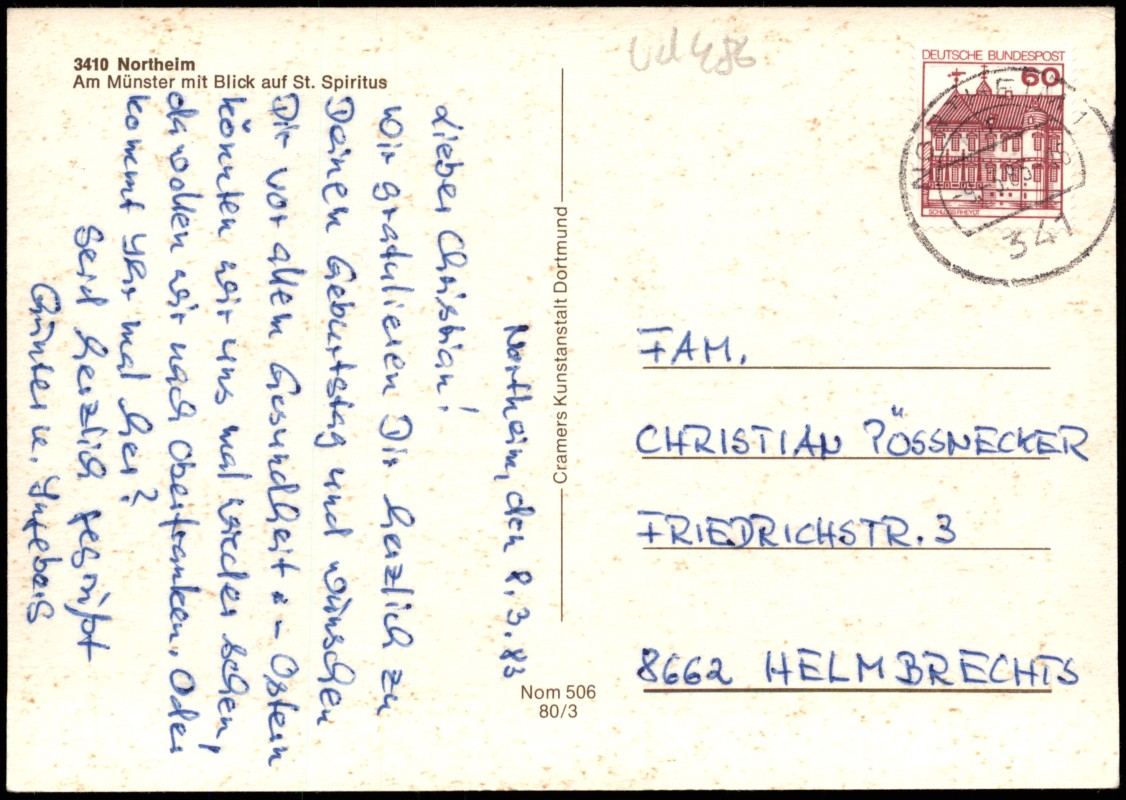 3410 Northeim
Am Münster mit Blick auf St. Spiritus
Northeim, den 8.3.83
Lieber Christian!
Wir gratulieren Dir herzlich zu
Deinen Geburtstag und wünschen
Dir vor allem Gesundheit. – Ostern
könnten wir uns mal wieder sehen,
da wollen wir nach Oberfranken. Oder
kommt Ihr mal her?
Seid herzlich gegrüßt
Günter u. Ingeborg
Cramers Kunstanstalt Dortmund
Nom 506
80/3
DEUTSCHE BUNDESPOST
60
SCHLOSS RHEYDT
NORTHEIM 1
341
FAM.
CHRISTIAN PÖSSNECKER
FRIEDRICHSTR. 3
8662 HELMBRECHTS